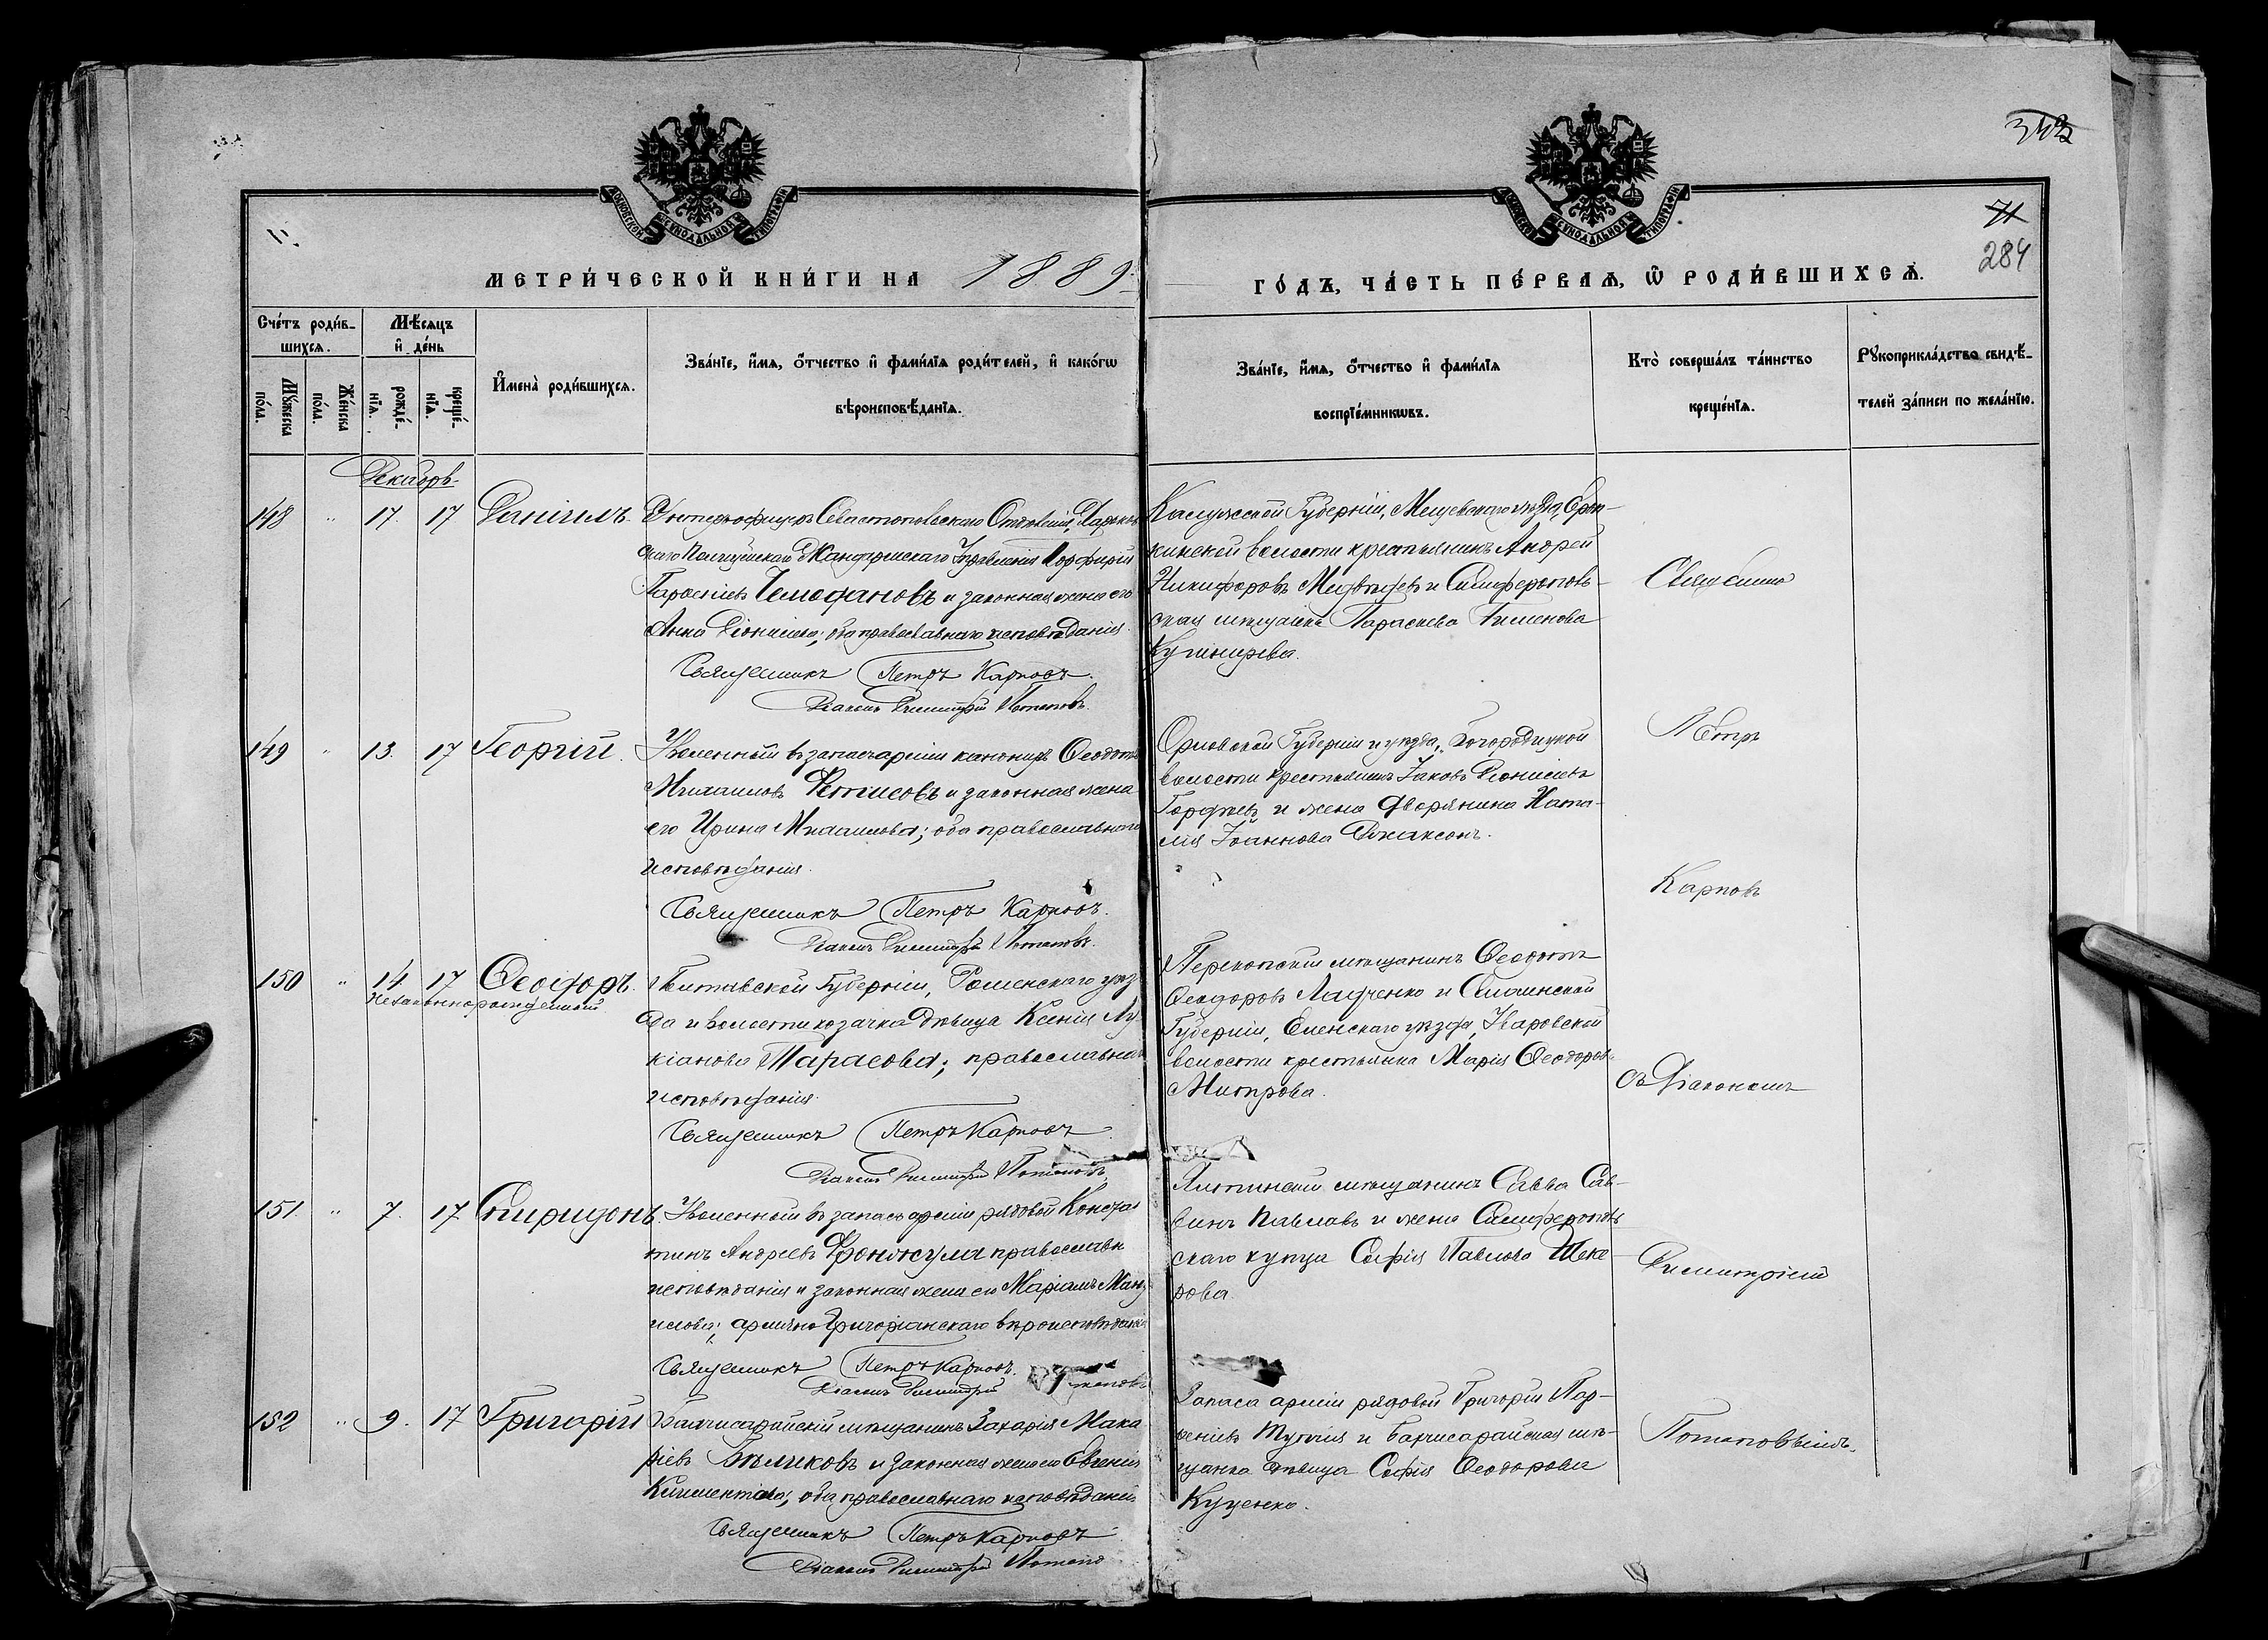 343
71
284
МОСКОВСКОЙ СѴНОДАЛЬНОЙ ТИПОГРАФІИ
МОСКОВСКОЙ СѴНОДАЛЬНОЙ ТИПОГРАФІИ
МЕТРИ́ЧЕСКОЙ КНИ́ГИ НА 1889
ГО́ДЪ, ЧА́СТЬ ПЕ́РВАѦ, Ѡ҆ РОДИ́ВШИХСѦ.
Сче́тъ роди́в-
шихсѧ.
Мѣ́сѧцъ
и҆ де́нь
Мꙋ́жеска
по́ла.
Же́нска
по́ла.
рожде́-
нїѧ.
креще́-
нїѧ.
И҆мена̀ роди́вшихсѧ.
Зва́нїе, и҆́мѧ, ѻ҆́тчество и҆ фами́лїѧ роди́телей, и҆ како́гѡ
вѣроисповѣ́данїѧ.
Зва́нїе, и҆́мѧ, ѻ҆́тчество и҆ фами́лїѧ
воспрїе́мникѡвъ.
Кто̀ соверша́лъ та́инство
креще́нїѧ.
Рꙋкоприкла́дство свидѣ́-
телей за́писи по жела́нїю.
Декабрь
148 " 17. 17 Даніилъ. Унтеръ-офицеръ Севастопольскаго Отдѣленія, Харьков
скаго Полицейскаго Жандармскаго Управленія Порфирій
Тарасіевъ Чемодановъ и законная жена его
Анна Діонисіева; оба православнаго исповѣданія.
Священникъ Петръ Карповъ.
Діаконъ Димитрій Потаповъ.
Калужской Губерніи, Мещовскаго уѣзда,
кинской волости крестьянинъ Андрей
Никифоровъ и Симферополь-
ская мѣщанка Параскева Пименова
149 " 13. 17 Георгій. Уволенный въ запасъ арміи канониръ Ѳеодотъ
Михаиловъ Фетисовъ и законная жена
его Ирина Михаилова; оба православнаго
исповѣданія.
Священникъ Петръ Карповъ.
Діаконъ Димитрій Потаповъ.
Орловской Губерніи и уѣзда, Богородицкой
волости крестьянинъ Іаковъ Діонисіевъ
Гордѣевъ и жена дворянина Ната-
лія Іоаннова Джаксонъ.
150 " 14 17 Ѳеодоръ.
незаконнорожденный
Полтавской Губерніи, Роменскаго уѣз
да и волости козачка дѣвица Ксенія Лу
кіанова Тарасова; православнаго
исповѣданія.
Священникъ Петръ Карповъ.
Діаконъ Димитрій Потаповъ.
Перекопскій мѣщанинъ Ѳеодотъ
Ѳеодоровъ Ладченко и Смоленской
Губерніи, Еленскаго уѣзда, Уваровской
волости крестьянка Марія Ѳеодорова
Митрова.
151. " 7. 17 Спиридонъ. Уволенный въ запасъ арміи рядовой Констан
тинъ Андреевъ православн
исповѣданія и законная жена его Маріамъ
армяно Григоріанскаго вѣроисповѣданія
Священникъ Петръ Карповъ.
Діаконъ Димитрій Потаповъ
Ялтинскій мѣщанинъ Савва Сав-
винъ Павловъ и жена Симферополь
скаго купца Софія Павлова Шека-
рова
152 " 9. 17 Григорій Бахчисарайскій мѣщанинъ Захарія Мака
ріевъ Бѣликовъ и законная жена его Евгенія
Климентова; оба православнаго исповѣданія
Священникъ Петръ Карповъ
Діаконъ Димитрій Потапо
Запаса арміи рядовой Григорій Пар-
ѳеніевъ и Бахчисарайская мѣ-
щанка дѣвица Софія Ѳеодорова
Куценко.
Священникъ
Петръ
Карповъ
съ Діакономъ
Димитріемъ
Потаповымъ.